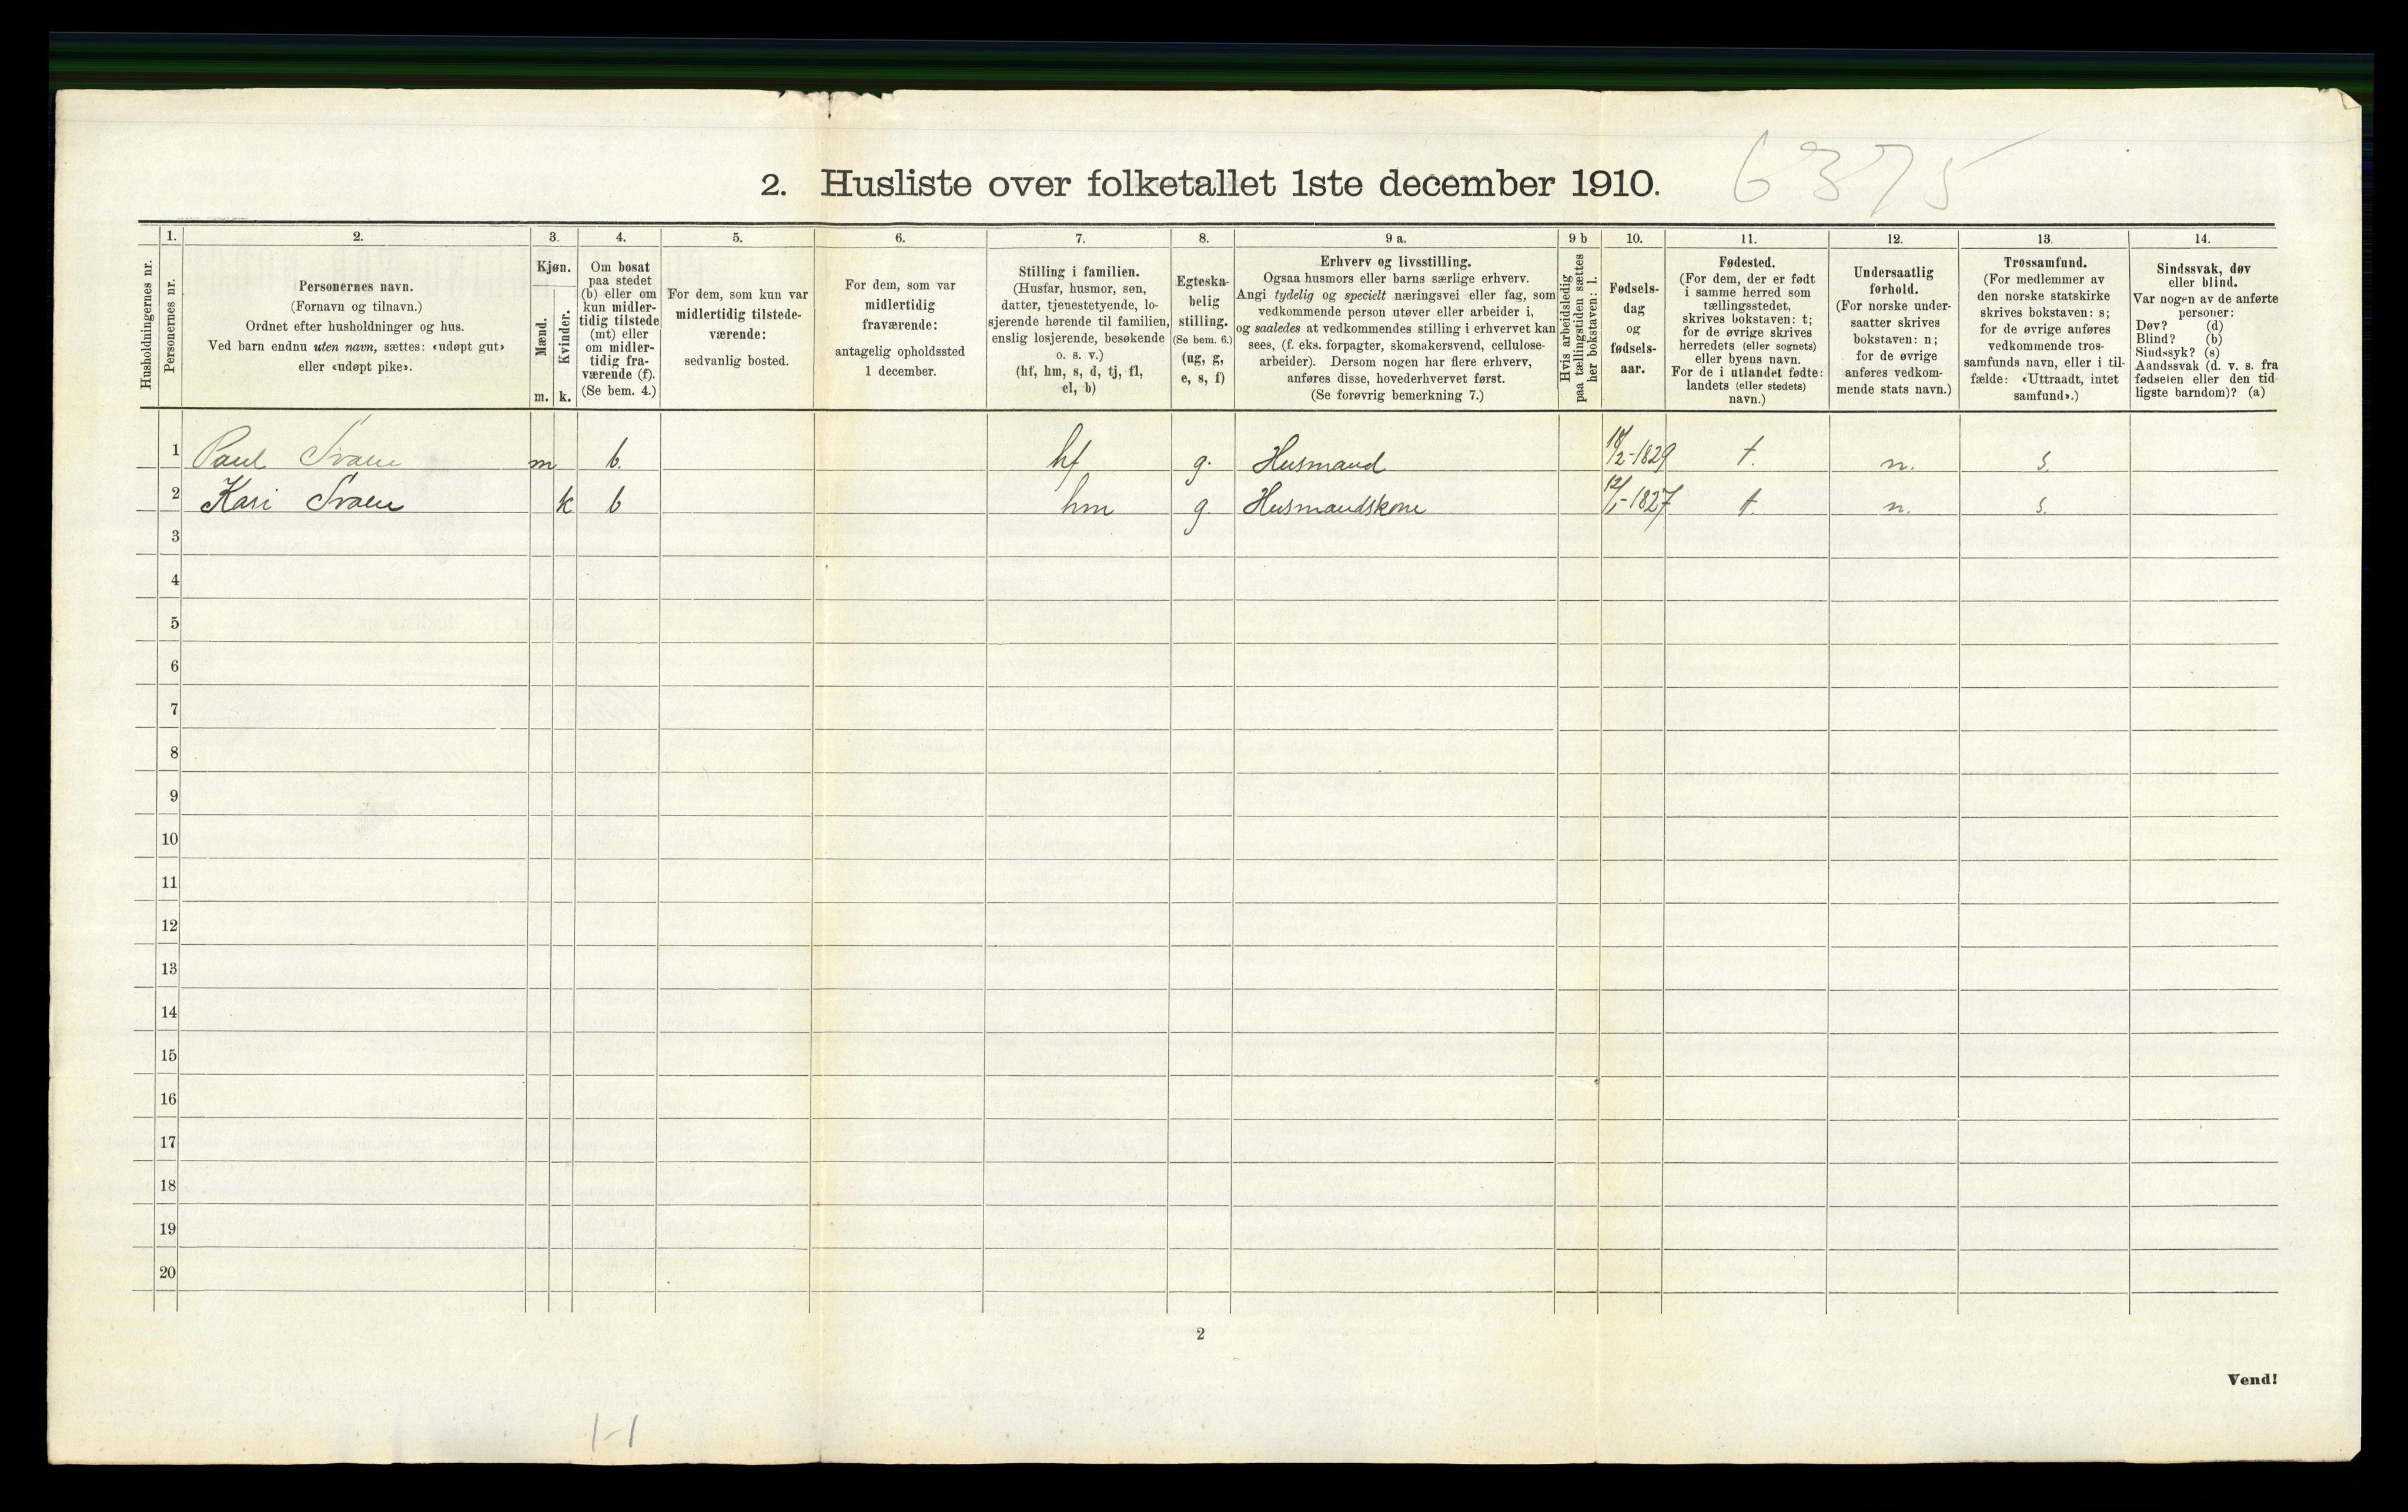 6375
2. Husliste over folketallet 1ste december 1910.
Husholdningernes nr.
1.
Personernes nr.
2.
Personernes navn.
(Fornavn og tilnavn.)
Ordnet efter husholdninger og hus.
Ved barn endnu uten navn, sættes: «udøpt gut»
eller «udøpt pike».
3.
Kjøn.
Mænd.
Kvinder.
m. k.
4.
Om bosat
paa stedet
(b) eller om
kun midler-
tidig tilstede
(mt) eller
om midler-
tidig fra-
værende (f).
(Se bem. 4.)
5.
For dem, som kun var
midlertidig tilstede-
værende:
sedvanlig bosted.
6.
For dem, som var
midlertidig
fraværende:
antagelig opholdssted
1 december.
7.
Stilling i familien.
(Husfar, husmor, søn,
datter, tjenestetyende, lo-
sjerende hørende til familien,
enslig losjerende, besøkende
o. s. v.)
(hf, hm, s, d, tj, fl,
el, b)
8.
Egteska-
belig
stilling.
(Se bem. 6.)
(ug, g,
e, s, f)
9 a.
Erhverv og livsstilling.
Ogsaa husmors eller barns særlige erhverv.
Angi tydelig og specielt næringsvei eller fag, som
vedkommende person utøver eller arbeider i,
og saaledes at vedkommendes stilling i erhvervet kan
sees, (f. eks. forpagter, skomakersvend, cellulose-
arbeider). Dersom nogen har flere erhverv,
anføres disse, hovederhvervet først.
(Se forøvrig bemerkning 7.)
9 b
Hvis arbeidsledig
paa tællingstiden sættes
her bokstaven: l.
10.
Fødsels-
dag
og
fødsels-
aar.
11.
Fødested.
(For dem, der er født
i samme herred som
tællingsstedet,
skrives bokstaven: t;
for de øvrige skrives
herredets (eller sognets)
eller byens navn.
For de i utlandet fødte:
landets (eller stedets)
navn.)
12.
Undersaatlig
forhold.
(For norske under-
saatter skrives
bokstaven: n;
for de øvrige
anføres vedkom-
mende stats navn.)
13.
Trossamfund.
(For medlemmer av
den norske statskirke
skrives bokstaven: s;
for de øvrige anføres
vedkommende tros-
samfunds navn, eller i til-
fælde: «Uttraadt, intet
samfund».)
14.
Sindssvak, døv
eller blind.
Var nogen av de anførte
personer:
Døv? (d)
Blind? (b)
Sindssyk? (s)
Aandssvak (d. v. s. fra
fødselen eller den tid-
ligste barndom)? (a)
1 Paul Svaen m b. hf g. Husmand 18/2-1829 t. n. s.
2 Kari Svaen k b hm g. Husmandskone 12/1-1827 t. n. s.
3
4
5
6
7
8
9
10
11
12
13
14
15
16
17
18
19
20
2
Vend!
1-1